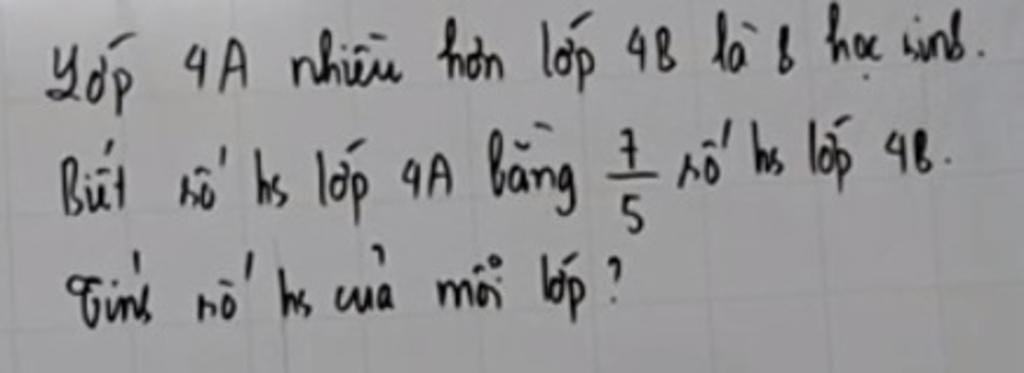 Lớp 4A nhiều hơn lớp 4B là 8 học sinh.
Biết số hs lớp 4A bằng 7/5 số hs lớp 4B.
Tính số hs của mỗi lớp?